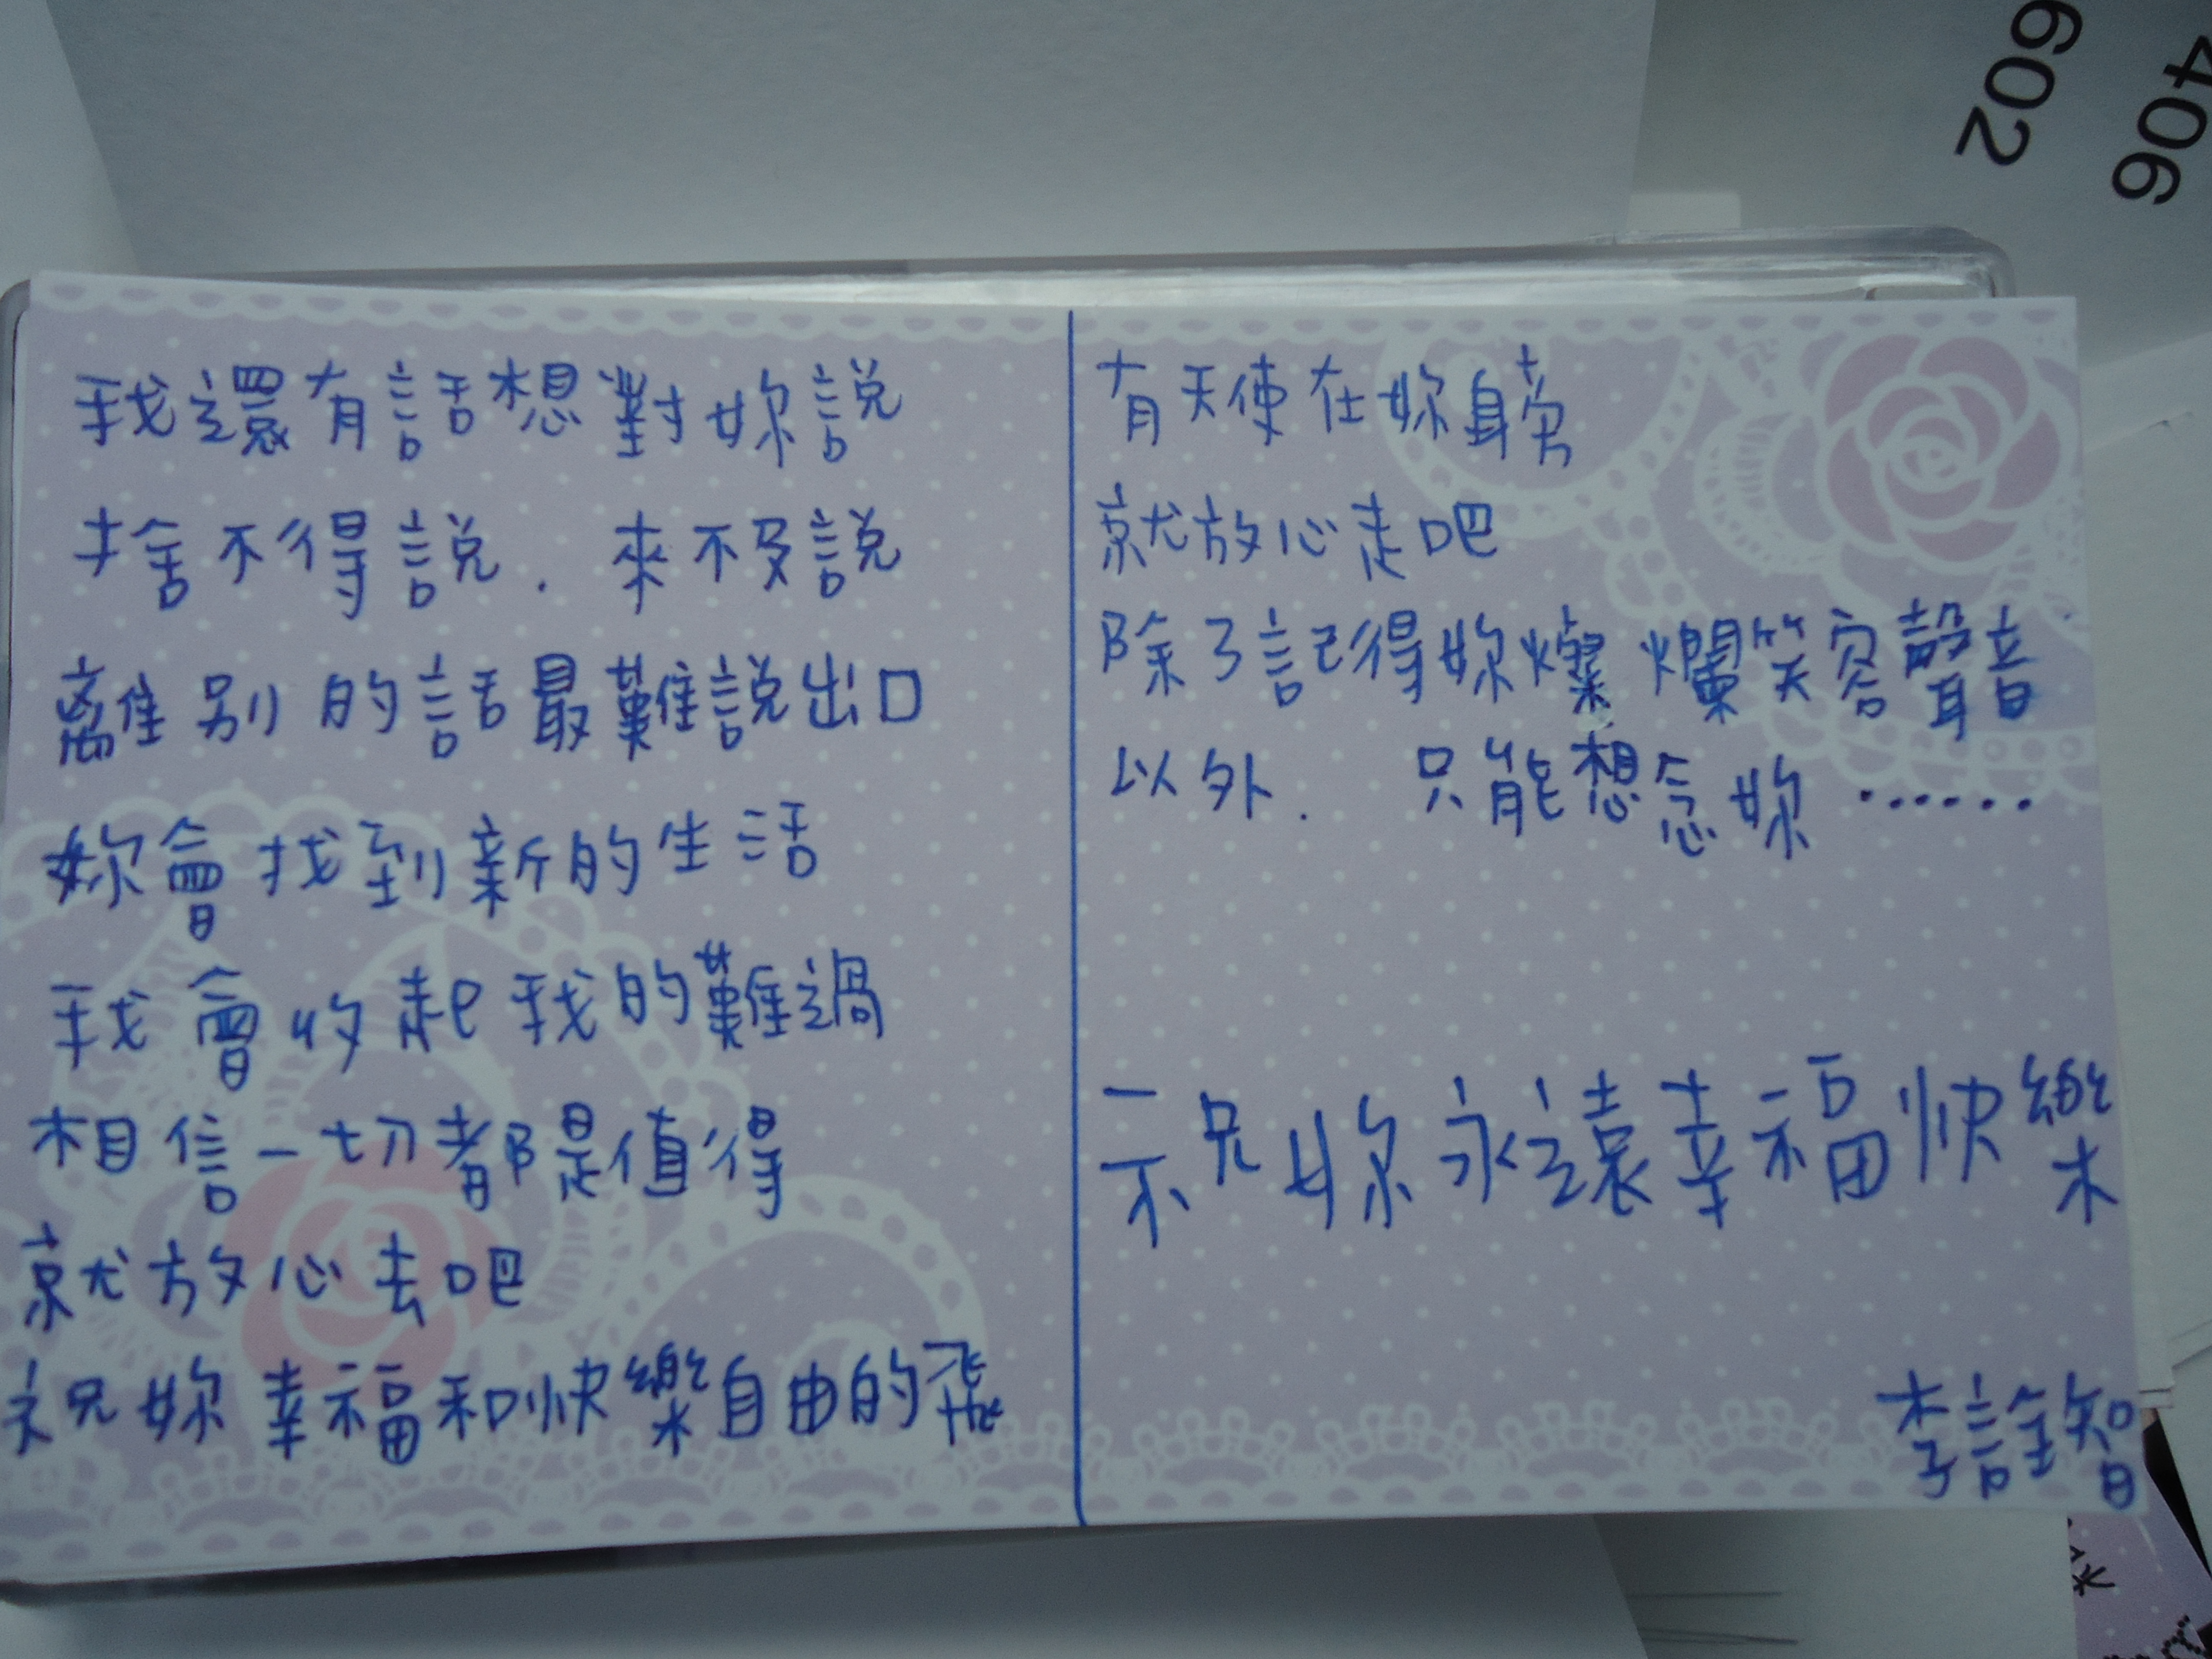 我還有話想對妳說
捨不得說．來不及說
離別的話最難說出口
妳會找到新的生活
我會收起我的難過
相信一切都是值得
就放心去吧
祝妳幸福和快樂自由的飛
有天使在妳身旁
就放心走吧
除了記得妳燦爛笑容聲音
以外．只能想念妳……
祝妳永遠幸福快樂
李詮智
602
406